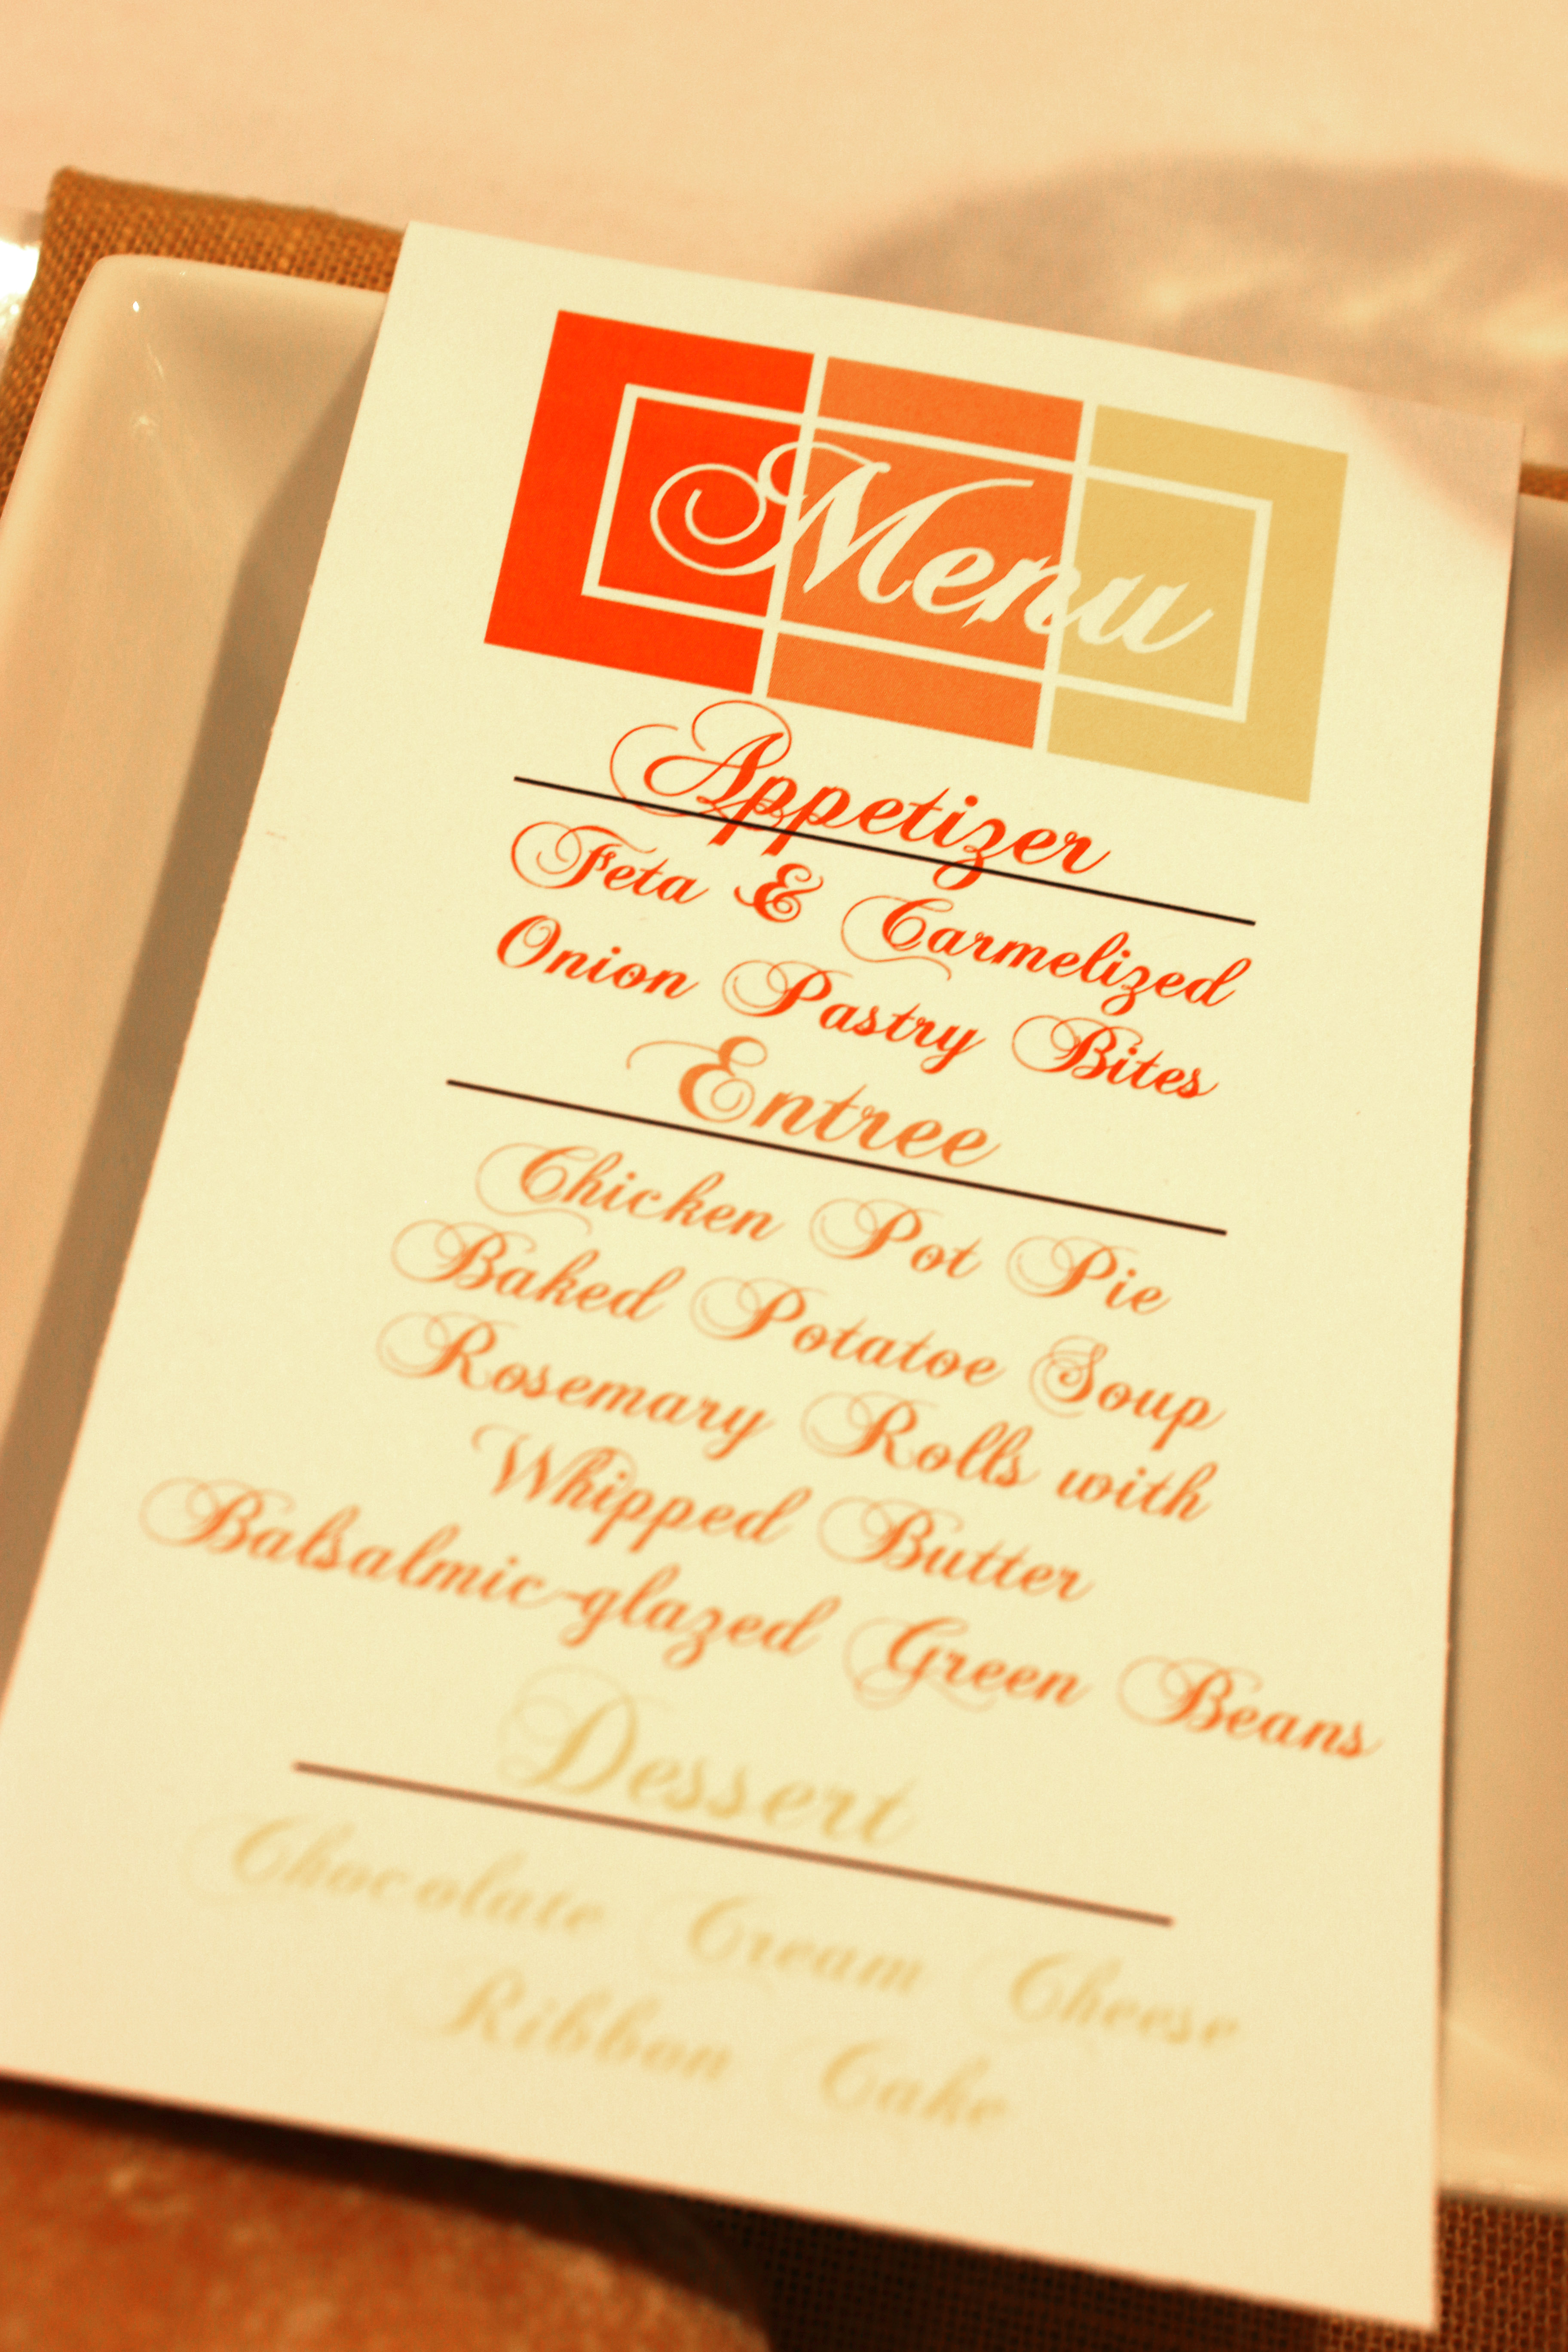 Menu
Appetizer
Feta & Carmelized
Onion Pastry Bites
Entree
Chicken Pot Pie
Baked Potatoe Soup
Rosemary Rolls with
Whipped Butter
Balsalmic-glazed Green Beans
Dessert
Chocolate Cream Cheese
Ribbon Cake